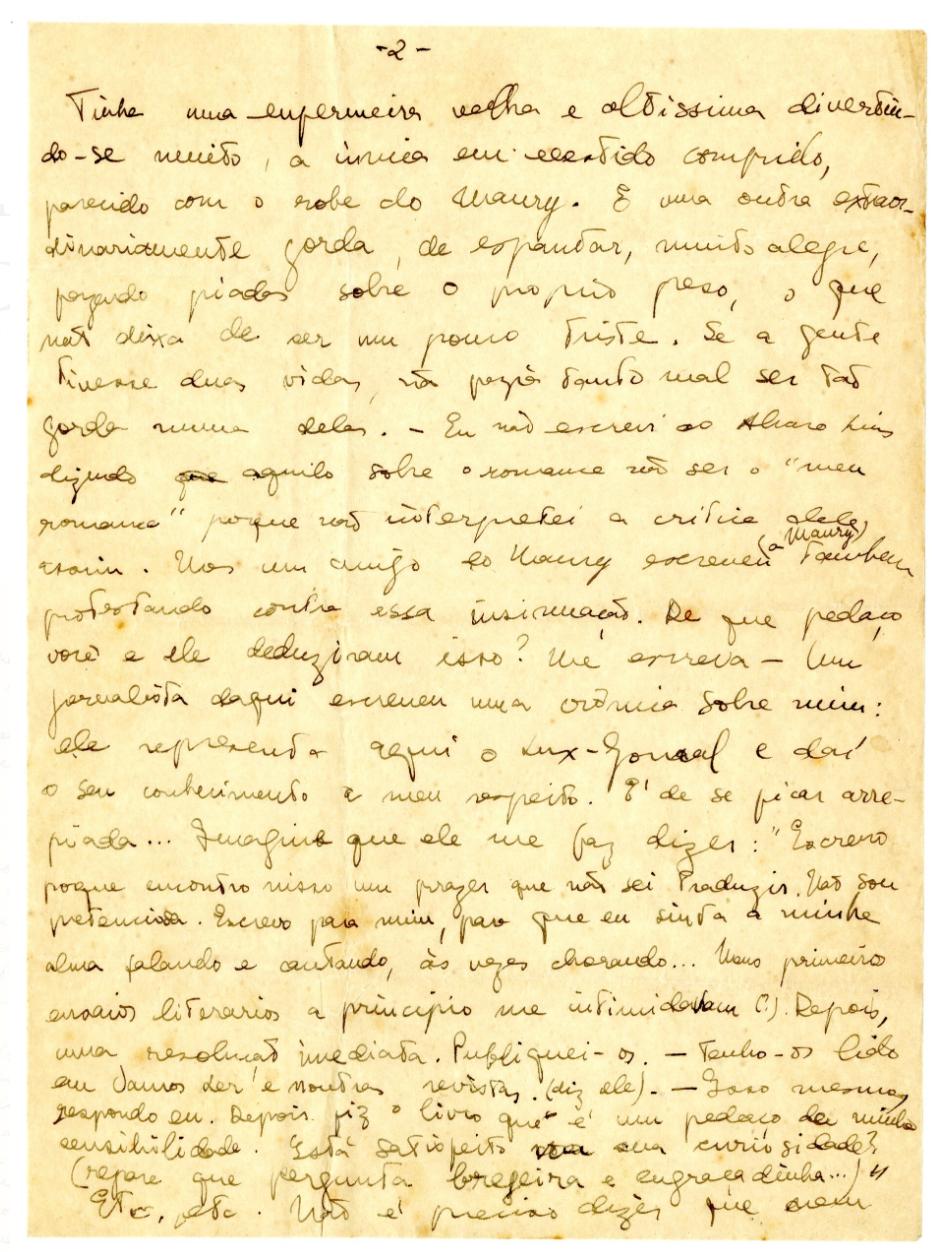 -2-
Tinha uma enfermeira velha e altissima divertin-
do-se muito, a única em vestido comprido,
parecido com o robe do Maury. E uma outra extraor-
dinariamente gorda, de espantar, muito alegre,
fazendo piadas sobre o proprio peso, o que
não deixa de ser um pouco triste. Se a gente
tivesse duas vidas, não fazia tanto mal ser tão
gorda numa delas. - Eu não escrevi ao Alvaro Lins
dizendo que aquilo sobre o romance não ser o "meu
romance" poque não interpretei a critica dele
assim. Mas um amigo do Maury escreveu (a Maury) tambem
protestando contra essa insinuação. De que pedaço
você e ele deduziram isso? Me escreva - Um
jornalista daqui escreveu uma crônica sobre mim:
ele representa aqui o Lux-Jornal e daí
o seu conhecimento a meu respeito. É de se ficar arre-
piada... Imagine que ele me faz dizer: "Escrevo
poque encontro nisso um prazer que não sei traduzir. Não sou
pretenciosa. Escrevo para mim, para que eu sinta a minha
alma falando e cantando, às vezes chorando... Meus primeiros
ensaios literarios a principio me intimidavam (?). Depois,
uma resolução imediata. Publiquei-os. - Tenho-os lido
em Vamos Ler! e noutras revistas (diz ele). - Isso mesmo,
respondo eu. Depois fiz o livro que é um pedaço da minha
sensibilidade. Está satisfeito sua curiosidade?
(repare que pergunta brejeira e engraçadinha...)"
Etc, etc. Não é preciso dizer que nem